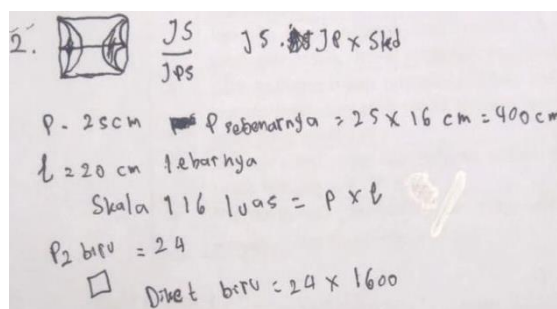 2. JS / JPS JS = JP x Skd
P = 25 cm P sebenarnya = 25 x 16 cm = 400 cm
l = 20 cm lebarnya
Skala 116 luas = p x l
P2 biru = 24
Diket biru = 24 x 1600